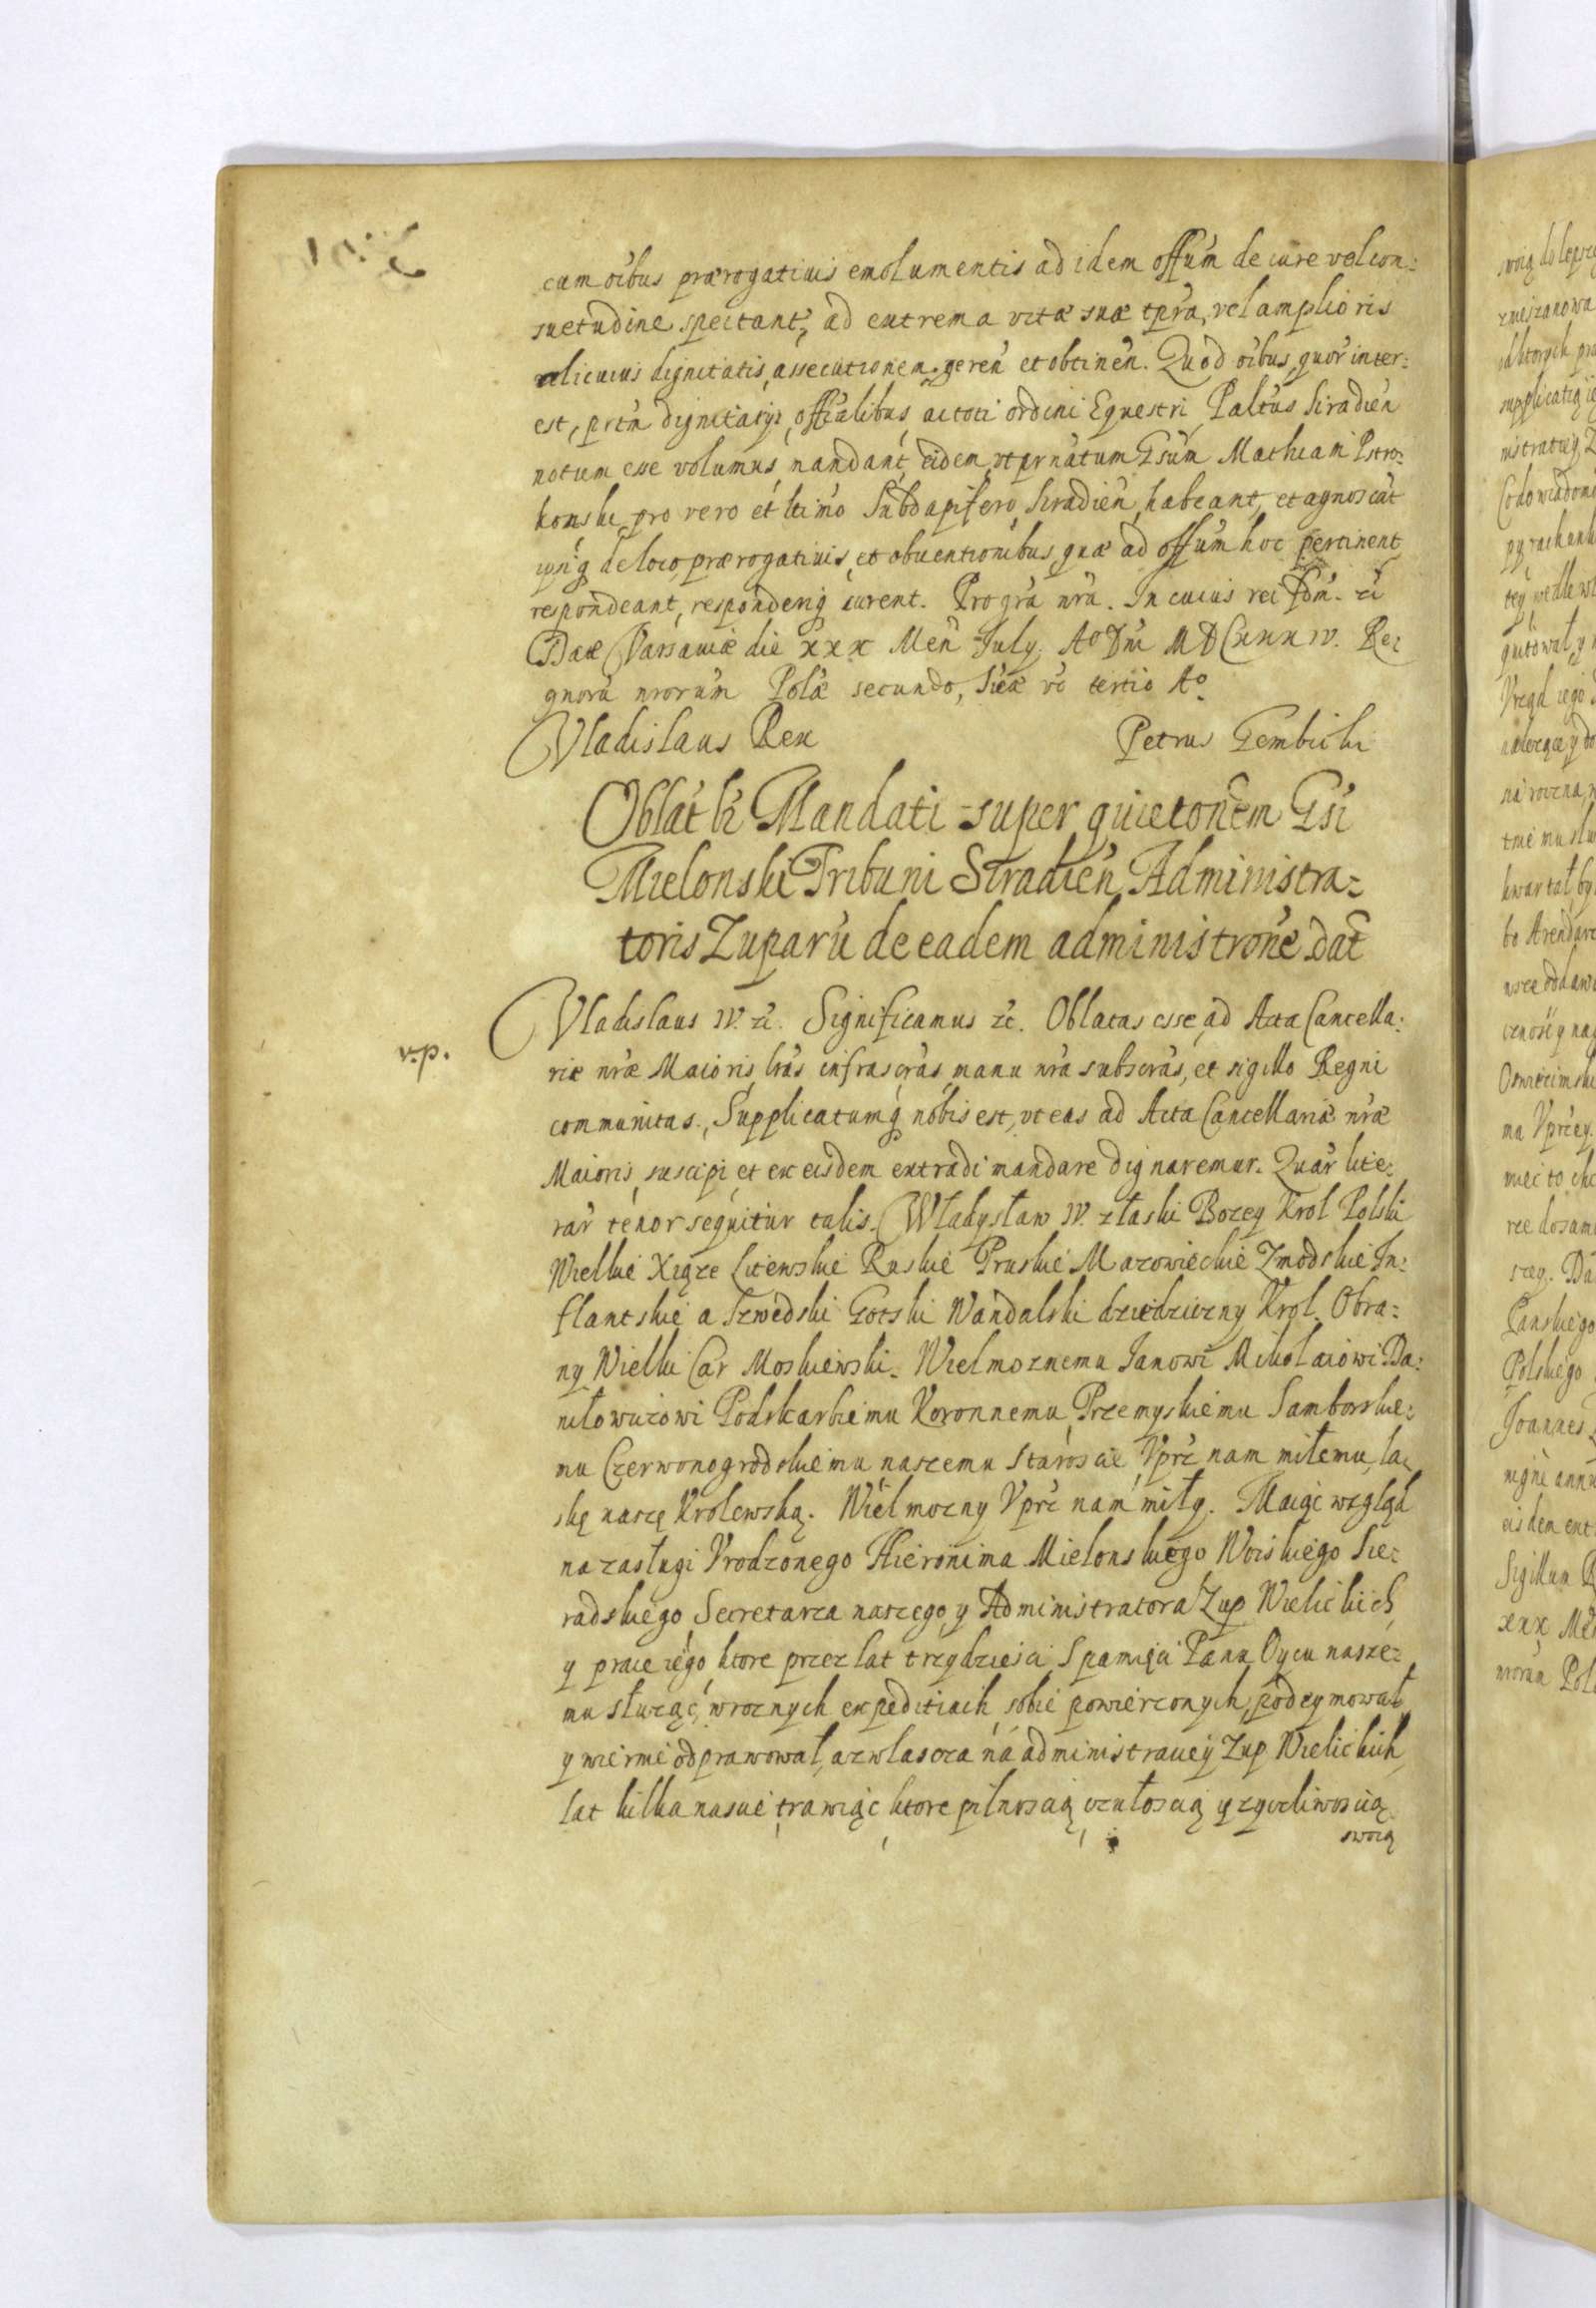 cum oibus prærogatiuis emolumentis ad idem offum de iure vel con:
suetudine spectant, ad extrema vitæ suæ tpra, vel amplioris
alicuius dignitatis assecutionem geren et obtinen. Quod oibus, quor inter:
est, prtm dignitarys, officialibus ac toti ordini Equestri Paltus Siradien
notum esse volumus, mandant, eidem, vt prnatum Gsum Mathiam Pstro:
konski pro vero et ltimo Subdapifero Siradien habeant, et agnoscat
ipsiq de loco prærogatiuis, et obuentionibus, quæ ad offum hoc pertinent
respondeant, responderiq curent. Pro gra nra. In cuius rei fdm. zc
Datæ Varsauiæ die xxx Men July. Ao Dni MDCxxxiv. Re:
gnoru nrorum Polæ secundo, Sueæ vo tertio Ao.
Vladislaus Rex Petrus Gembicki
Oblat lr Mandati super quietonem Gsi
Mielonski Tribuni Siradien, Administra:
toris Zuparu de eadem administrone dat
v.p.
Vladislaus IV. zc. Significamus zc. Oblatas esse ad Acta Cancella:
riæ nræ Maioris, lras infrascras, manu nra subscras, et sigillo Regni
communitas. Supplicatumq nobis est, vt eas ad Acta Cancellariæ nræ
Maioris, suscipi, et ex eisdem extradi mandare dignaremur. Quar lite:
rar tenor sequitur talis. Władysław IV. z łaski Bozey Krol Polski
Wielkie Xiąze Litewskie Ruskie Pruskie Mazowieckie Zmodskie In:
flantskie a Szwedski Gotski Wandalski dziedziczny Krol. Obra:
ny Wielki Car Moskiewski. Wielmoznemu Janowi Mikołaiowi Da:
niłowiczowi Podskarbiemu Koronnemu, Przemyskiemu Samborskie:
mu Czerwonogrodskiemu naszemu Staroscie, Vprz nam miłemu, ła:
skę naszę Krolewską. Wielmozny Vprz nam miły. Maiąc wzgląd
na zasługi Vrodzonego Hieronima Mielonskiego Woiskiego Sie:
radskiego Secretarza naszego y Administratora Zup Wielickich
y prace iego, ktore przez lat trzydziesci S pamięci Panu Oycu nasze:
mu słuząc, w roznych expeditiach sobie powierzonych, podeymował
y wiernie odprawował, a zwlascza na administracey Zup Wielickich,
lat kilkanascie trawiąc ktore pilnoscią czułoscią y zyczliwoscią
swoią